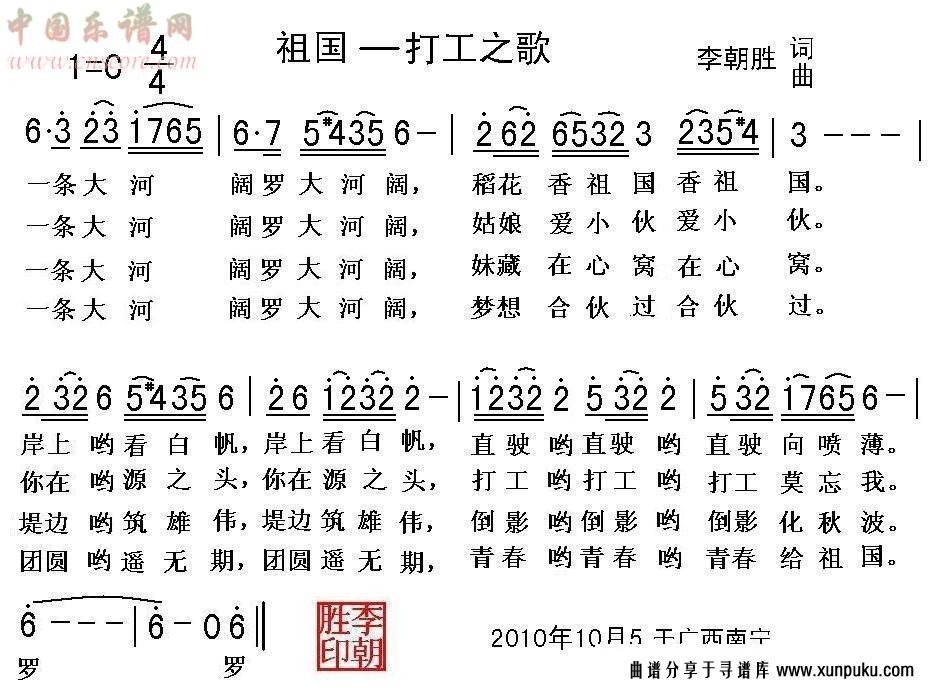 中国乐谱网
www.cnscore.com
1=C 4/4
祖国 — 打工之歌
李朝胜 词曲
6·3 23 1765 | 6·7 5#435 6 – | 2 62 6532 3 235#4 | 3 – – – |
一条大河 阔罗大河阔， 稻花香祖国香祖国。
一条大河 阔罗大河阔， 姑娘爱小伙爱小伙。
一条大河 阔罗大河阔， 妹藏在心窝在心窝。
一条大河 阔罗大河阔， 梦想合伙过合伙过。
2 32 6 5#435 6 | 26 1232 2 – | 1232 2 5 32 2 | 5 32 1765 6 – |
岸上哟看白帆，岸上看白帆， 直驶哟直驶哟直驶向喷薄。
你在哟源之头，你在源之头， 打工哟打工哟打工莫忘我。
堤边哟筑雄伟，堤边筑雄伟， 倒影哟倒影哟倒影化秋波。
团圆哟遥无期，团圆遥无期， 青春哟青春哟青春给祖国。
6 – – – | 6 – 0 6 ‖
罗 罗
李朝胜印
2010年10月5 于广西南宁
曲谱分享于寻谱库 www.xunpuku.com